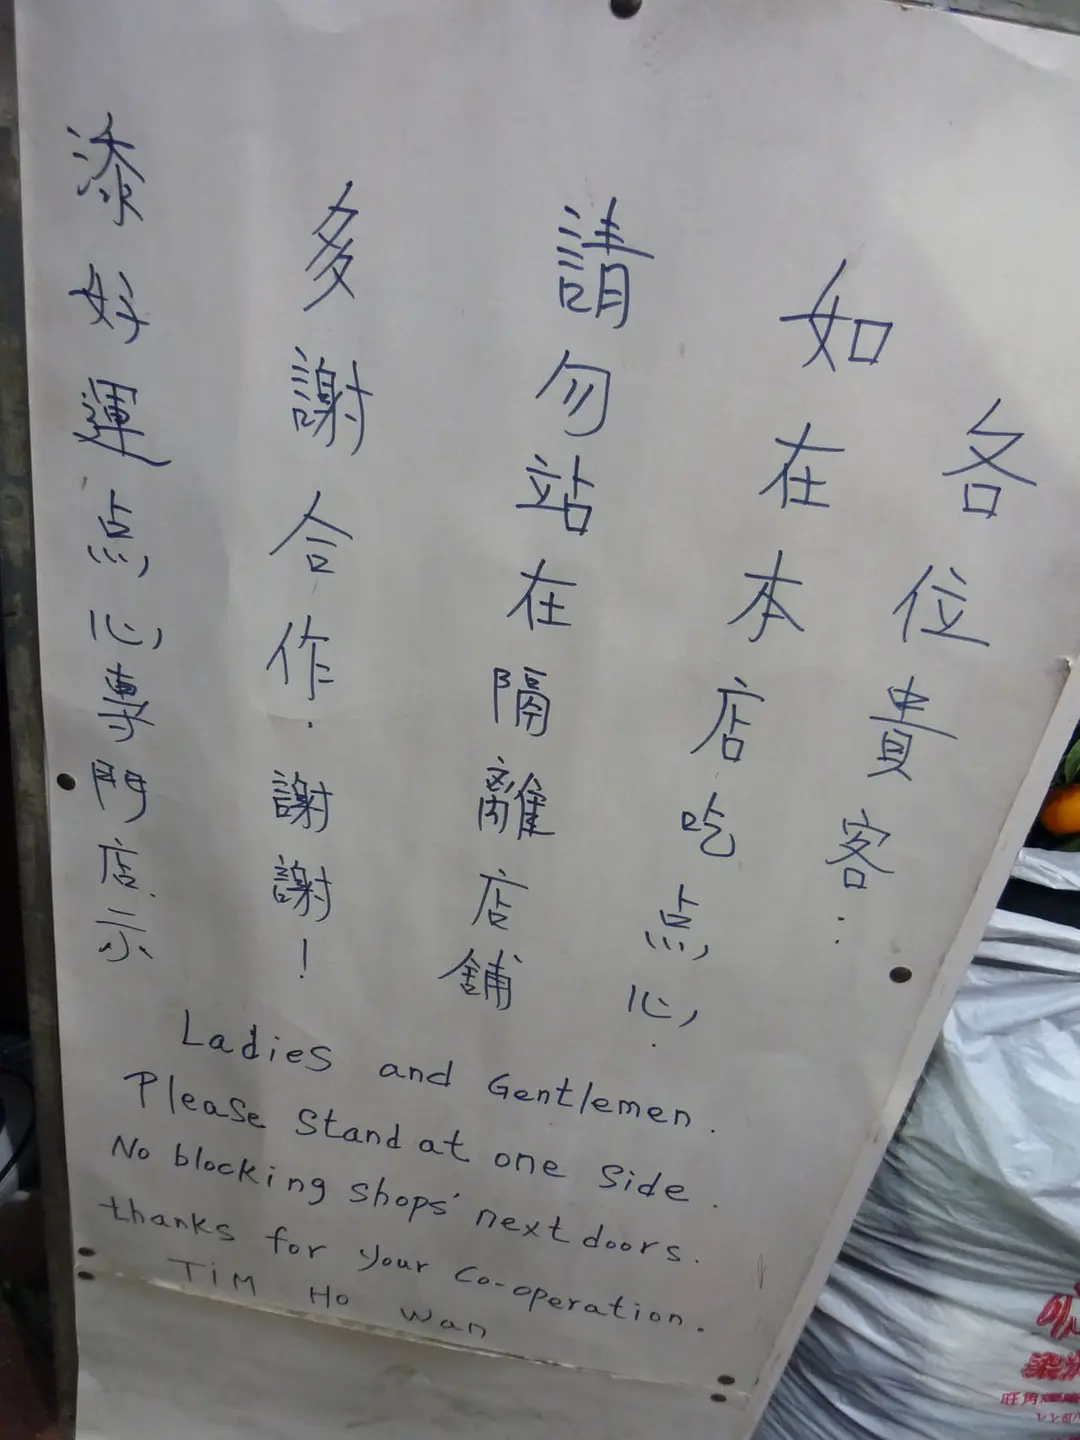 各位貴客:
如在本店吃点心,
請勿站在隔離店舖
多謝合作.謝謝!
添好運点心專門店示
Ladies and Gentlemen.
Please stand at one side.
No blocking shops' next doors.
thanks for your co-operation.
TiM Ho Wan
旺角